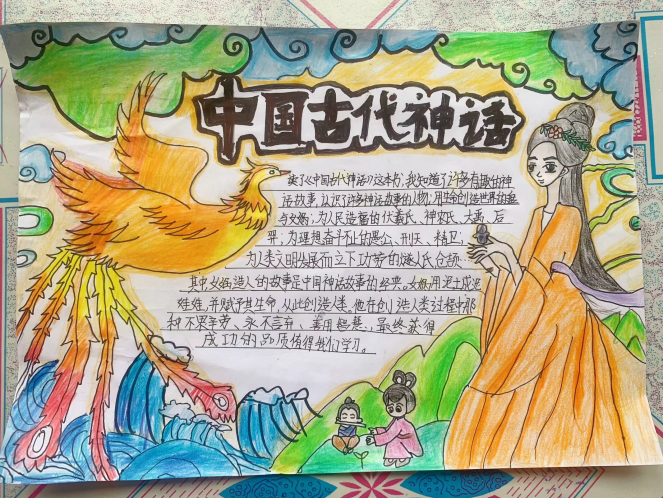 中国古代神话
读了《中国古代神话》这本书,我知道了许多有趣的神
话故事,认识了许多神话故事的人物;用生命创造世界的盘
与女娲;为人民造福的伏羲氏、神农氏、大禹、后
羿;为理想奋斗不止的愚公、刑天、精卫;
为人类文明发展而立下功劳的燧人氏、仓颉。
其中女娲造人的故事是中国神话故事的经典。女娲用泥土成泥
娃娃,并赋予其生命,从此创造人类。他在创造人类过程中那
种不畏辛劳、永不言弃、善用智慧、最终获得
成功的品质值得我们学习。